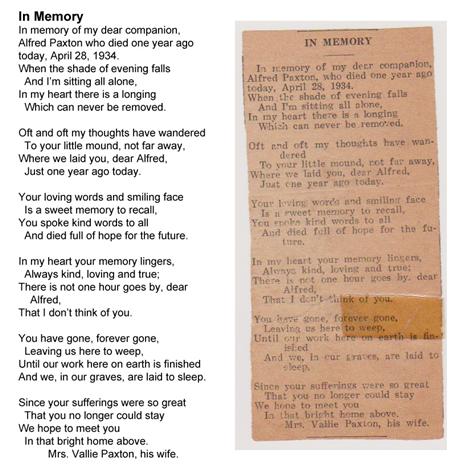 In Memory
In memory of my dear companion,
Alfred Paxton who died one year ago
today, April 28, 1934.
When the shade of evening falls
And I'm sitting all alone,
In my heart there is a longing
Which can never be removed.
Oft and oft my thoughts have wandered
To your little mound, not far away,
Where we laid you, dear Alfred,
Just one year ago today.
Your loving words and smiling face
Is a sweet memory to recall,
You spoke kind words to all
And died full of hope for the future.
In my heart your memory lingers,
Always kind, loving and true;
There is not one hour goes by, dear
Alfred,
That I don't think of you.
You have gone, forever gone,
Leaving us here to weep,
Until our work here on earth is finished
And we, in our graves, are laid to sleep.
Since your sufferings were so great
That you no longer could stay
We hope to meet you
In that bright home above.
Mrs. Vallie Paxton, his wife.
IN MEMORY
In memory of my dear companion,
Alfred Paxton, who died one year ago
today, April 28, 1934.
When the shade of evening falls
And I'm sitting all alone,
In my heart there is a longing
Which can never be removed.
Oft and oft my thoughts have wan-
dered
To your little mound, not far away,
Where we laid you, dear Alfred,
Just one year ago today.
Your loving words and smiling face
Is a sweet memory to recall,
You spoke kind words to all
And died full of hope for the fu-
ture.
In my heart your memory lingers,
Always kind, loving and true;
There is not one hour goes by, dear
Alfred,
That I don't think of you.
You have gone, forever gone,
Leaving us here to weep,
Until our work here on earth is fin-
ished
And we, in our graves, are laid to
sleep.
Since your sufferings were so great
That you no longer could stay
We hope to meet you
In that bright home above.
Mrs. Vallie Paxton, his wife.